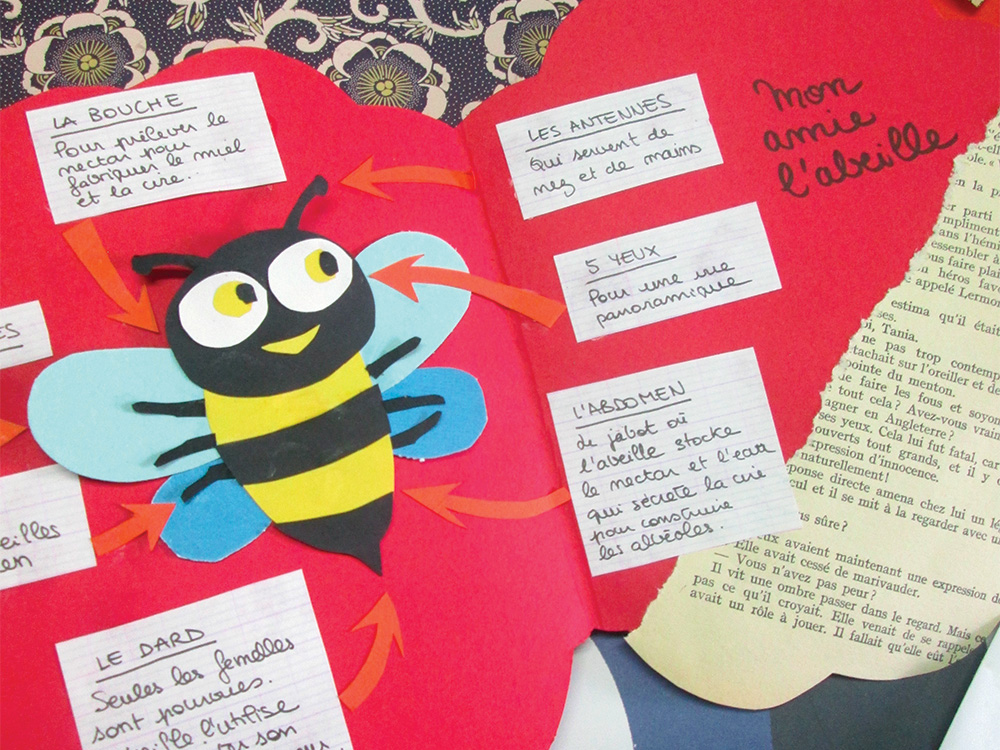 LA BOUCHE
Pour prélever le
nectar pour
fabriquer le miel
et la cire..
LES ANTENNES
Qui servent de
nez et de mains
Mon
amie
l'abeille
5 YEUX
Pour une vue
panoramique
L'ABDOMEN
Le jabot où
l'abeille stocke
le nectar et l'eau
qui sécrète la cire
pour construire
les alvéoles.
ES
eilles
en
LE DARD
Seules les femelles
sont pourvues.
l'utilise
son
ole. «
en la
er parti
mpliment
ans l'hém
essembler à
ous faire plai
n héros favo
appelé Lermo
estima qu'il étai
ses.
oi, Tania.
ne pas trop contemp
tachait sur l'oreiller et de
pointe du menton.
de faire les fous et soyon
tout cela? Avez-vous vrai
agner en Angleterre?
ses yeux. Cela lui fut fatal, car
ouverts tout grands, et il y
xpression d'innocence.
naturellement!
ponse directe amena chez lui un l
cul et il se mit à la regarder avec u
sûre?
eux avaient maintenant une expression d
Elle avait cessé de marivauder.
— Vous n'avez pas peur?
Il vit une ombre passer dans le regard. Mais c
pas ce qu'il croyait. Elle venait de se rappel
avait un rôle à jouer. Il fallait qu'elle eût l'